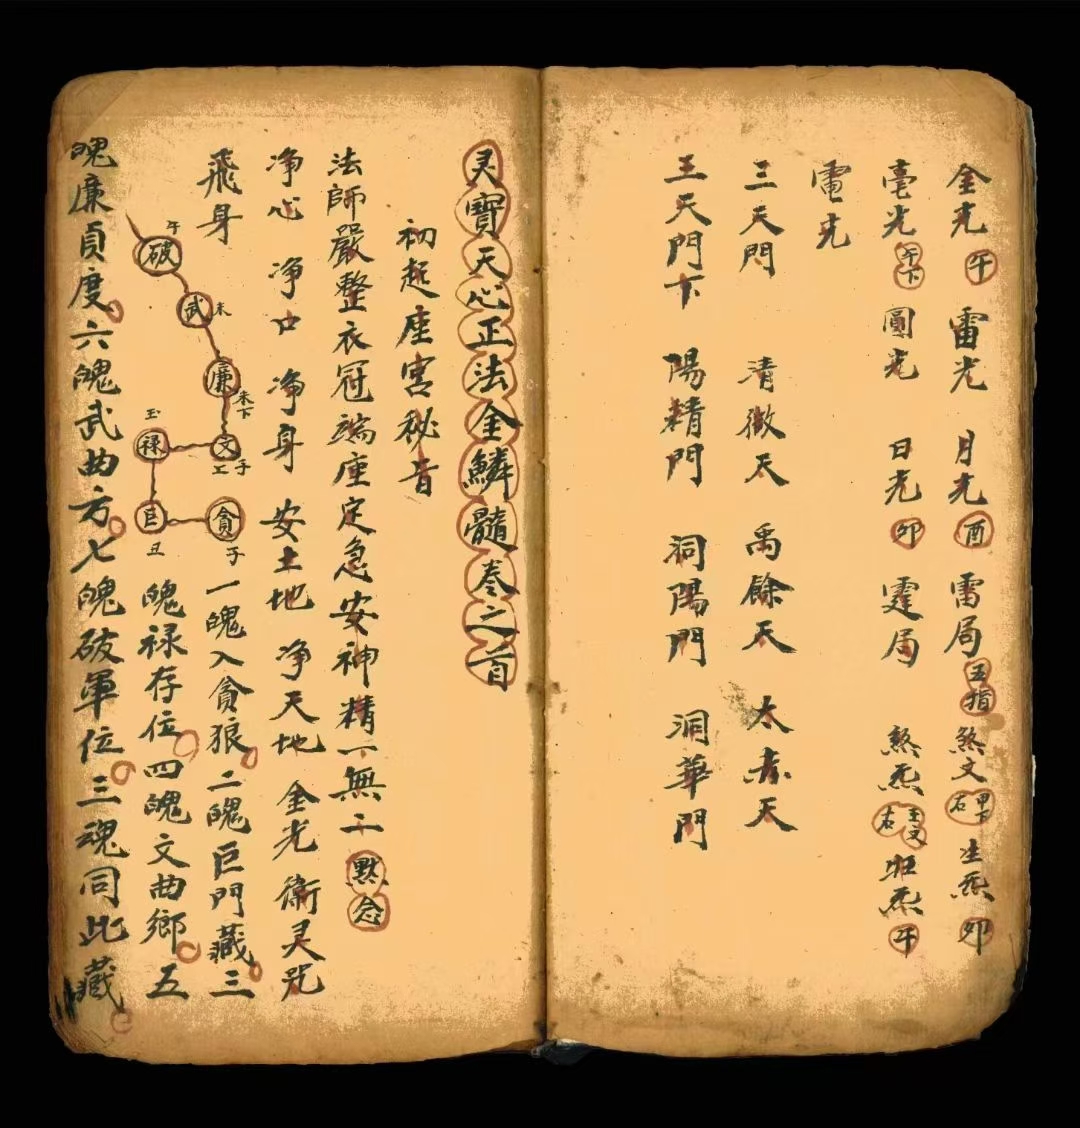 金光午 雷光 月光酉 雷局五指 煞文甲下右 生炁卯
毫光午下 圓光 日光卯 霆局 煞炁玉文右 旺炁午
電光
三天門 清微天 禹餘天 太赤天
三天門下 陽精門 洞陽門 洞華門
灵寶天心正法全鱗髓卷之首
初起座宫秘旨
法師嚴整衣冠端座定急安神精一無二默念
净心 净口 净身 安土地 净天地 金光 衛灵咒
飛身
破午
武未
廉未下
文子
禄玉
巨丑
貪子
一魄入貪狼二魄巨門藏三
魄禄存位四魄文曲鄉五
魄廉貞度六魄武曲方七魄破軍位三魂同此藏